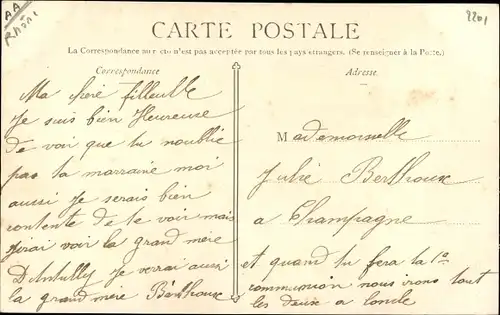 AA
Rhône
2201
CARTE POSTALE
La Correspondance au recto n'est pas acceptée par tous les pays étrangers. (Se renseigner à la Poste.)
Correspondance
Adresse
Ma chère filleulle
Je suis bien Heureuse
de voir que tu noublie
pas ta marraine moi
aussi Je serais bien
contente de te voir mais
Jirai voir la grand mère
D'Antully Je verai aussi
la grand mère Bérthoux
Mademoiselle
Julie Berthoux
a Champagne
et quand tu fera ta 1o
communion nous irons tout
les deux a